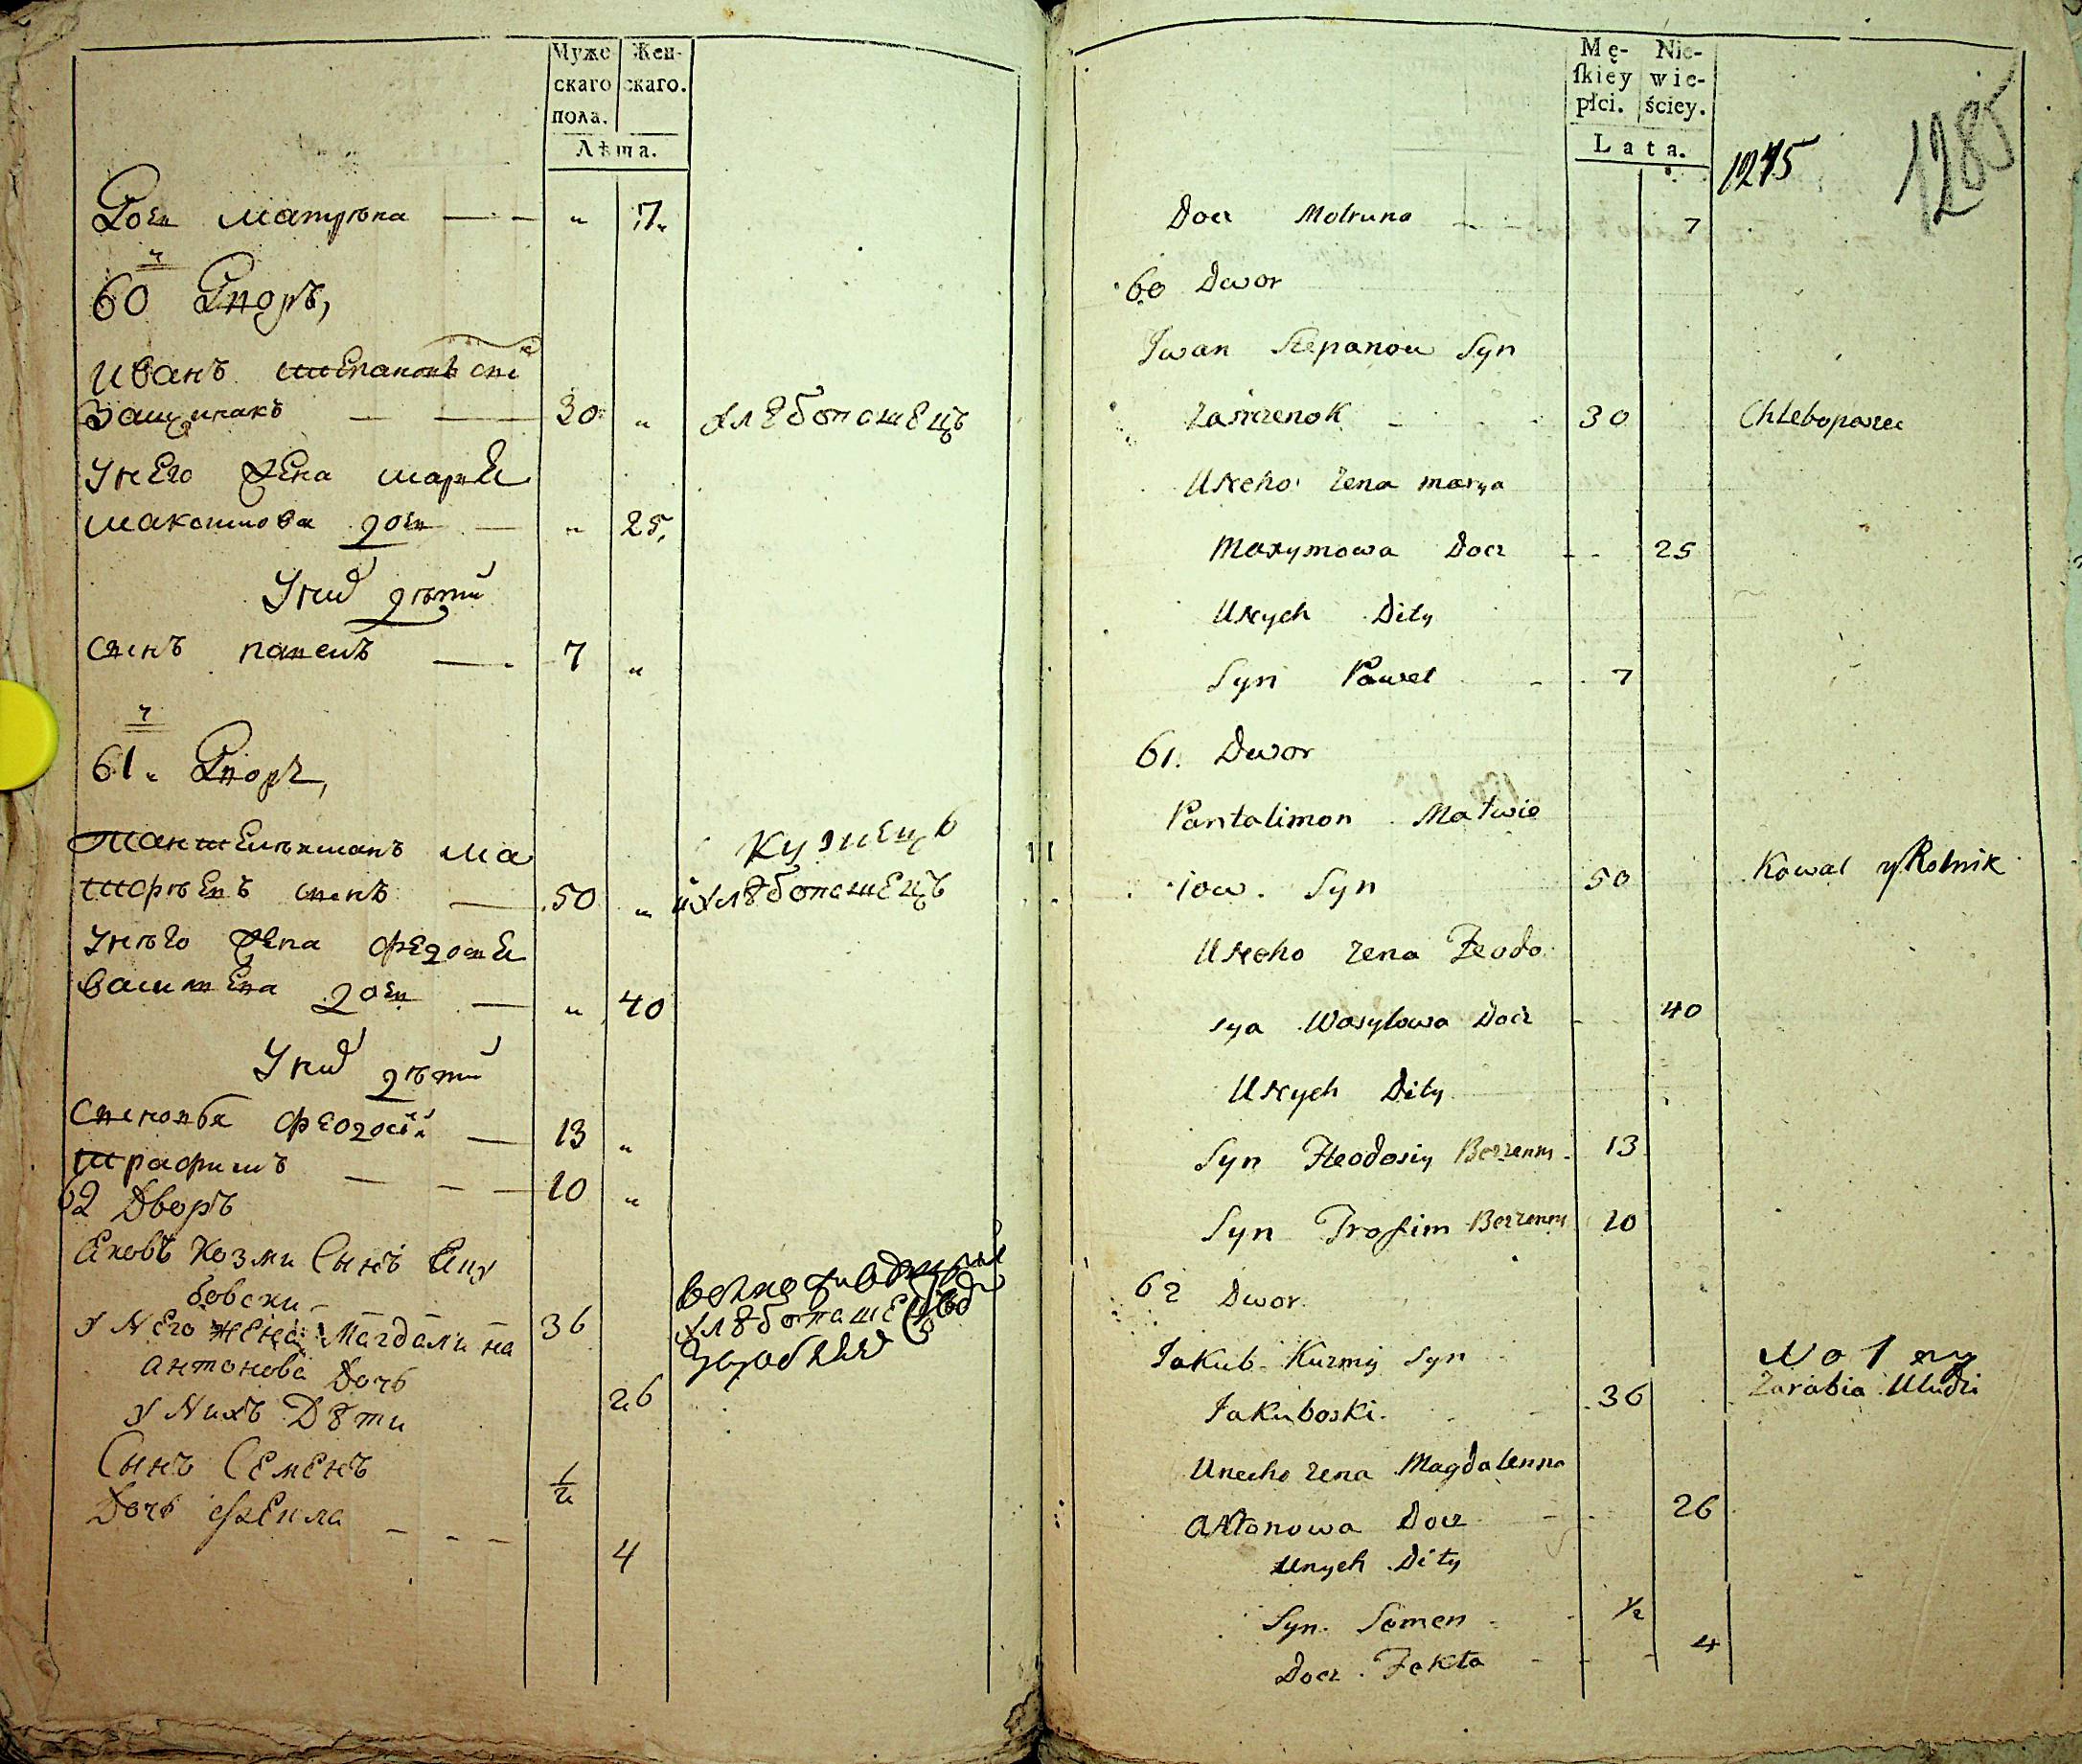 Муже Жен-
скаго скаго.
пола.
Лѣта.
Дочь Матрѣна — — „ 7.
60 Дворъ,
Иванъ Степановъ снъ
Защинакъ — — 30 „ хлѣбопашецъ
У него жена Маря
Максимова дочь — „ 25,
У них дѣти
Сынъ Павелъ — 7 „
61. Дворъ,
Ма Кузнецъ
сынъ — 50 „ и хлѣбопашецъ
У него жена Федося
Василева дочь — „ 40
У них дѣти
Сыновья Феодосій — 13 „
Трофимъ — — — 10 „
62 Дворъ
Яковъ Козми Сынъ Яку
бовски 36
У Него жена Магдалина хлѣбопашец
Антонова Дочь 26
У Нихъ Дѣти
Сынъ Семенъ 1/2
Дочь Фекла — — — 4
Mę- Nie-
ſkiey wie-
płci. ściey.
Lata.
1275 1285
Docz Motruna — — 7
60 Dwor
Iwan Stepanow Syn
Zaszczenok 30 Chleboparzec
Uneho zena marya
Maxymowa Docz 25
Unych Dity
Syn Paweł 7
61. Dwor
Pantalimon Matwie
iow. Syn 50 Kowal y Rolnik
Uneho zena Feodo
sya Wasylowa Docz 40
Unych Dity
Syn Fteodosiy Bezzenny 13
Syn Trofim Bezzenny 10
62 Dwor
Iakub Kuzmiy Syn Wolny
Iakuboski. 36 Zarabia Uludzi
Uneho zena Magdalenna
Antonowa Docz 26
Unych Dity
Syn Semen 1/2
Docz Fekła 4